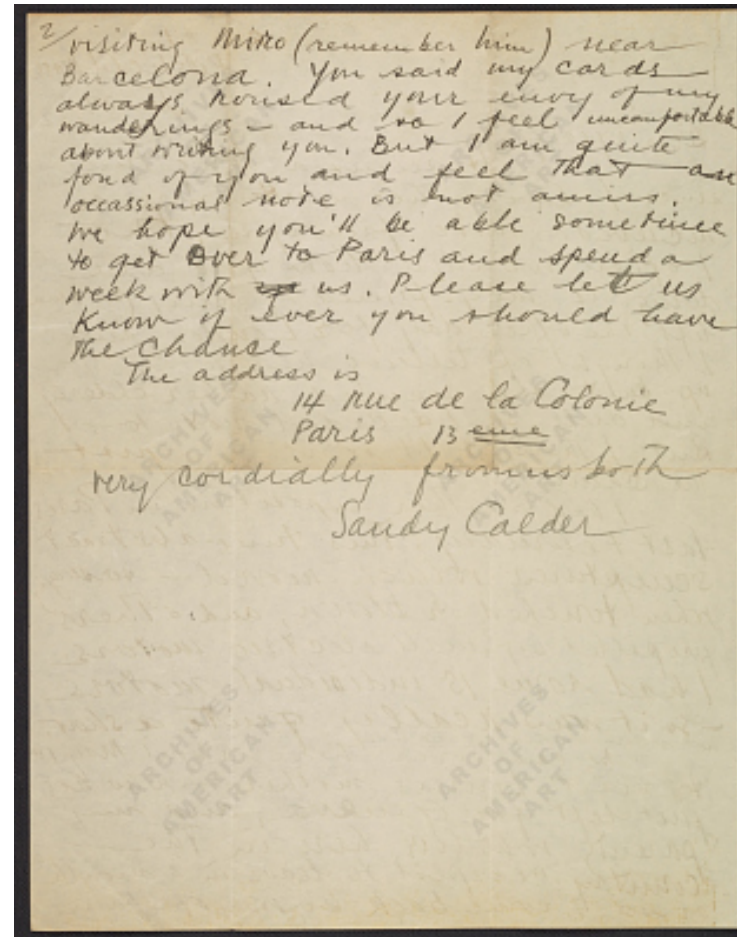 2/ visiting Miro (remember him) near
Barcelona. You said my cards
always roused your envy of my
wanderings – and so I feel uncomfortable
about writing you. But I am quite
fond of you and feel that an
occassional note is not amiss.
We hope you'll be able sometime
to get over to Paris and spend a
week with us. Please let us
Know if ever you should have
the chanse
The address is
14 rue de la Colonie
Paris 13 eme
very cordially from us both
Sandy Calder
ARCHIVES
OF
AMERICAN
ART
ARCHIVES
OF
AMERICAN
ART
ARCHIVES
OF
AMERICAN
ART
ARCHIVES
OF
AMERICAN
ART